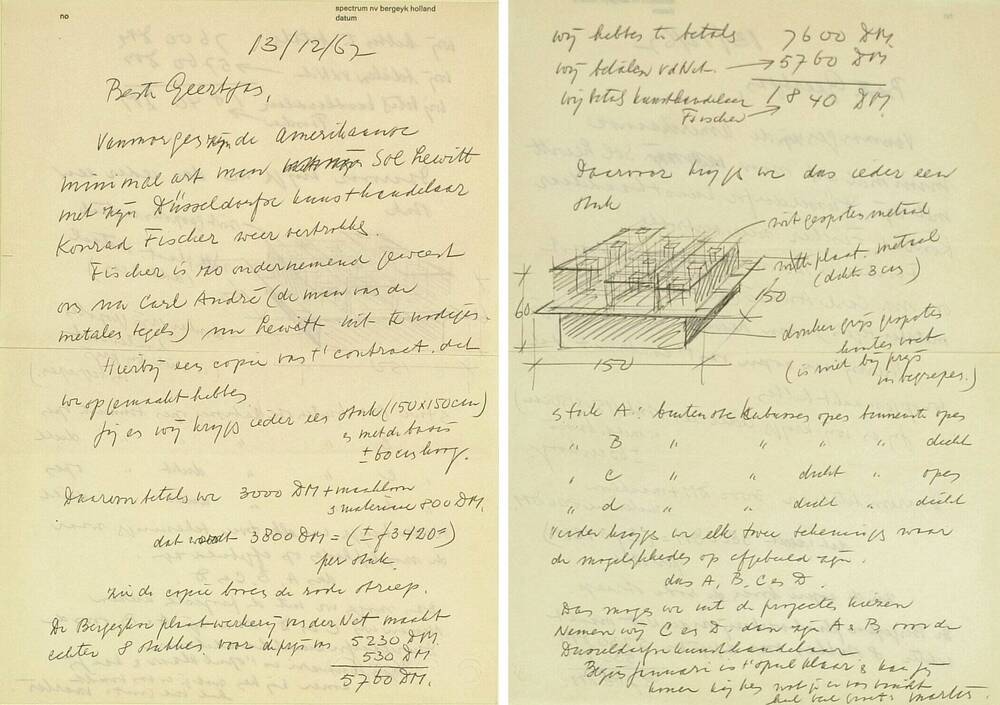 no
spectrum nv bergeyk holland
datum
13/12/67
Beste Geertjan,
Vanmorgen zijn de amerikaanse
minimal art man Sol Lewitt
met zijn Düsseldorfse kunsthandelaar
Konrad Fischer weer vertrokken.
Fischer is zo ondernemend geweest
om na Carl André (de man van de
metalen tegels) nu Lewitt uit te nodigen.
Hierbij een copie van t' contract, dat
we opgemaakt hebben
Jij en wij krijgen ieder een stuk (150x150cm)
& met de basis
± 60 cm hoog.
Daarvoor betalen we 3000 DM + maakloon
& materiaal 800 DM.
dat wordt 3800 DM = (± f 3420=)
per stuk
zie de copie boven de rode streep.
De Bergeykse plaatwerkerij vd Net maakt
echter 8 stukken voor de prijs van 5230 DM.
530 DM
5760 DM.
wij hebben te betalen 7600 DM.
wij betalen vd Net. → 5760 DM
wij betalen kunsthandelaar 1840 DM
Fischer →
Daarvoor krijgen we dus ieder een
stuk
wit gespoten metaal
witte plaat. metaal
(dikte 3 cm)
150
60
150
donker grijs gespoten
houten voet
(is niet bij prijs
inbegrepen.)
stuk A: buitenste kubussen open binnenste open
" B " " " " dicht
" C " " dicht " open
" d " " dicht " dicht
Verder krijgen we elk twee tekeningen waar
de mogelijkheden op afgebeeld zijn.
dus A, B, C en D.
Dan mogen we uit de projecten kiezen
Nemen wij C en D. dan zijn A & B voor de
Dusseldorfse kunsthandelaar
Begin januari is t' spul klaar & kan jij
komen kijken wat je er van vindt
heel veel groeten Martin.